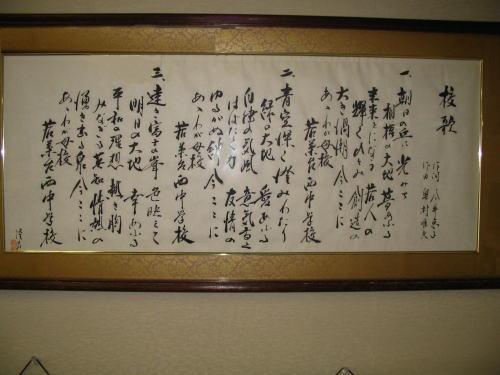 校歌
作詞
作曲 奥村
一、朝日の丘に 光みつ
相模の大地 夢あふる
未来をになう 若人の
輝くひとみ 創造の
大き渦潮 今ここに
あゝわが母校
若葉台西中学校
二、青空深く 澄みわたり
緑の大地 愛あふる
自律の気風 意気高く
はばたく力 友情の
ゆるがぬ絆 今ここに
あゝわが母校
若葉台西中学校
三、遠き富士の峯 色映えて
明日の大地 幸あふる
平和の理想 熱き胸
みなぎる英知 情熱の
湧き出る泉 今ここに
あゝわが母校
若葉台西中学校